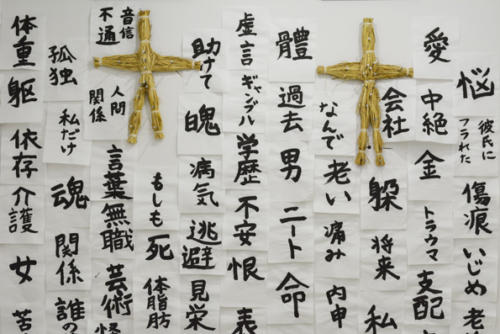 悩
彼氏に
フラれた
傷痕
いじめ
老
愛
中絶
金
トラウマ
支配
会社
将来
私
なんで
老い
痛み
内申
體
過去
男
ニート
命
虚言
ギャンブル
学歴
不安
恨
表
助けて
病気
逃避
見栄
もしも
死
体脂肪
音信
不通
人間
関係
言葉
無職
芸術
孤独
私だけ
魂
関係
誰の
体重
躯
依存
介護
女
苦